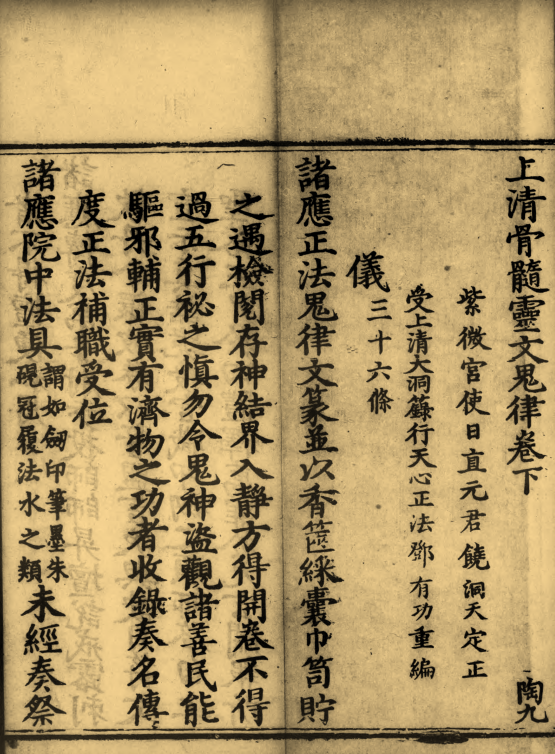 上清骨髓靈文鬼律卷下
陶九
紫微宮使日直元君饒洞天定正
受上清大洞籙行天心正法鄧有功重編
儀三十六條
諸應正法鬼律文篆並以香篋綵囊巾笥貯
之遇檢閱存神結界入靜方得開卷不得
過五行祕之慎勿令鬼神盜觀諸善民能
驅邪輔正實有濟物之功者收錄奏名傳
度正法補職受位
諸應院中法具謂如劒印筆墨朱硯冠履法水之類未經奏祭